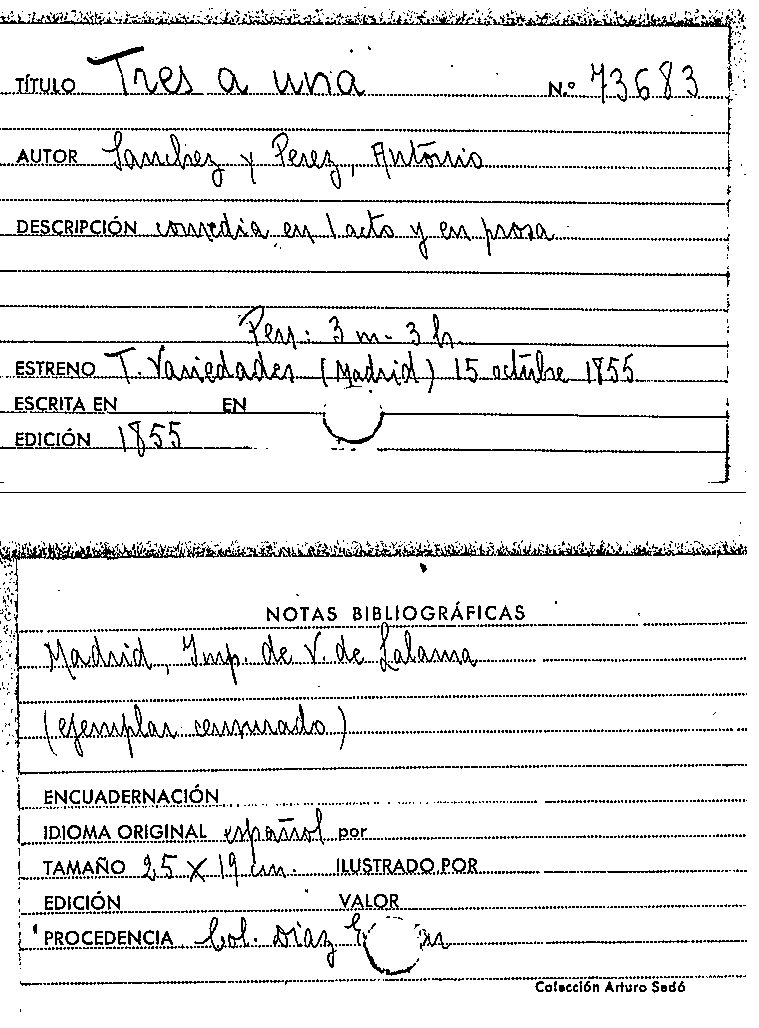 TÍTULO Tres a una N.º 73683
AUTOR Sanchez y Perez, Antonio
DESCRIPCIÓN comedia en 1 acto y en prosa
Pers: 3 m - 3 h.
ESTRENO T. Variedades (Madrid) 15 octubre 1855
ESCRITA EN EN
EDICIÓN 1855
NOTAS BIBLIOGRÁFICAS
Madrid, Imp. de V. de Lalama
(ejemplar censurado)
ENCUADERNACIÓN
IDIOMA ORIGINAL español por
TAMAÑO 25 X 19 cm. ILUSTRADO POR
EDICIÓN VALOR
PROCEDENCIA Col. Díaz
Colección Arturo Sedó